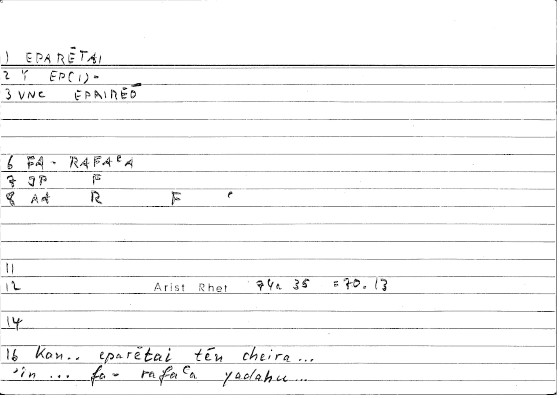 1 EPARĒTAI
2 Y EP(I)-
3 VNC EPAIREŌ
6 FA - RAFAᶜA
7 JP F
8 AA R F ᶜ
11
12 Arist Rhet 74a 35 = 70.13
14
16 Kan.. eparētai tēn cheira...
'in ... fa- rafaᶜa yadahu...